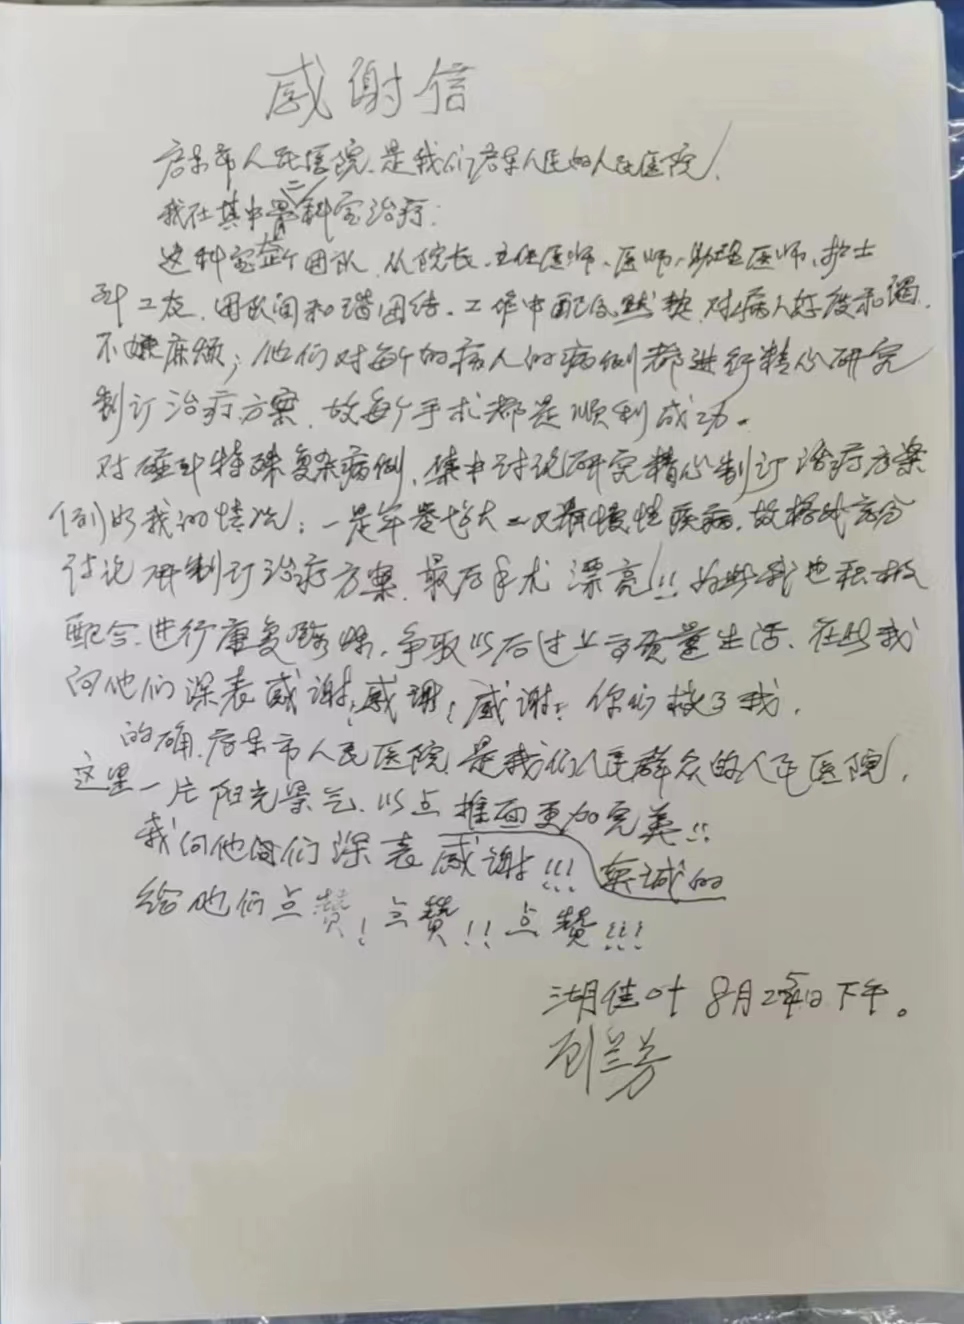 感谢信
启东市人民医院.是我们启东人民的人民医院!
我在其中骨二科室治疗:
这科室整个团队.从院长.主任医师、医师、助理医师、护士
到工友.团队间和谐团结.工作中配合默契.对病人态度和谐.
不嫌麻烦;他们对每个的病人的病例都进行精心研究
制订治疗方案.故每个手术都是顺利成功。
对碰到特殊复杂病例,集中讨论研究精心制订治疗方案
例如我的情况:一是年老 大二又 慢性疾病.故 充分
讨论研制订治疗方案.最后手术漂亮!!为此我也积极
配合.进行康复锻炼.争取以后过上高质量生活.在此我
向他们深表感谢!感谢!感谢!你们救了我.
的确.启东市人民医院是我们人民群众的人民医院!
这里一片阳光景气.以点推面更加完美!!
我向他们深表感谢!!!
给他们点赞!点赞!!点赞!!!
8月25日下午。
刘兰芳